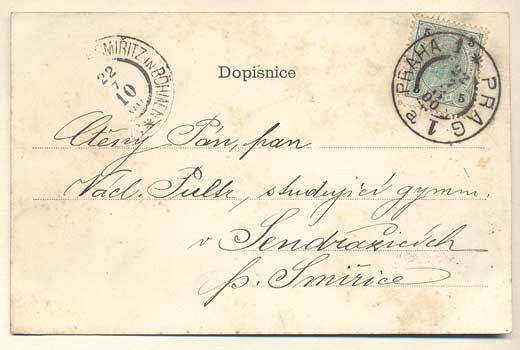 SMIŘITZ IN BÖHMEN
22
7
10
Dopisnice
5 5
PRAHA 1 * PRAG 1 a
22
00
5
Ctěný Pán, pan
Václ. Pultr, studující gymn.
v Sendražicích
p. Smiřice